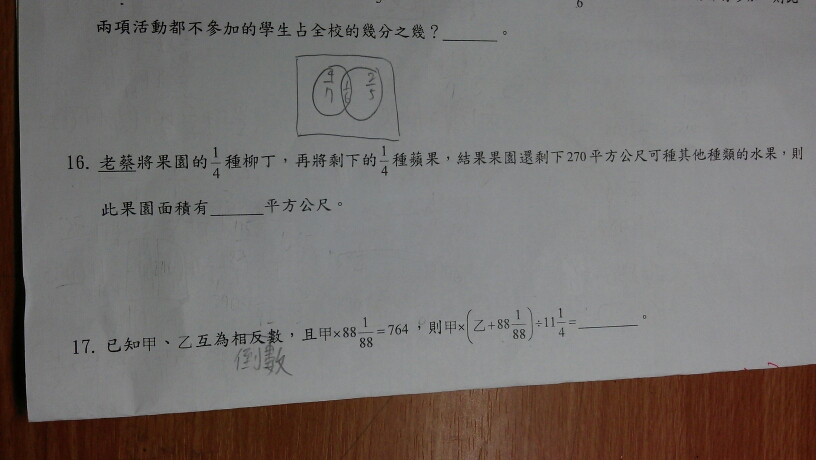 6
兩項活動都不參加的學生占全校的幾分之幾?______。
4/7 1/6 2/5
16. 老蔡將果園的1/4種柳丁,再將剩下的1/4種蘋果,結果果園還剩下270平方公尺可種其他種類的水果,則
此果園面積有______平方公尺。
17. 已知甲、乙互為相反數,且甲×88 1/88=764,則甲×(乙+88 1/88)÷11 1/4=______。
倒數